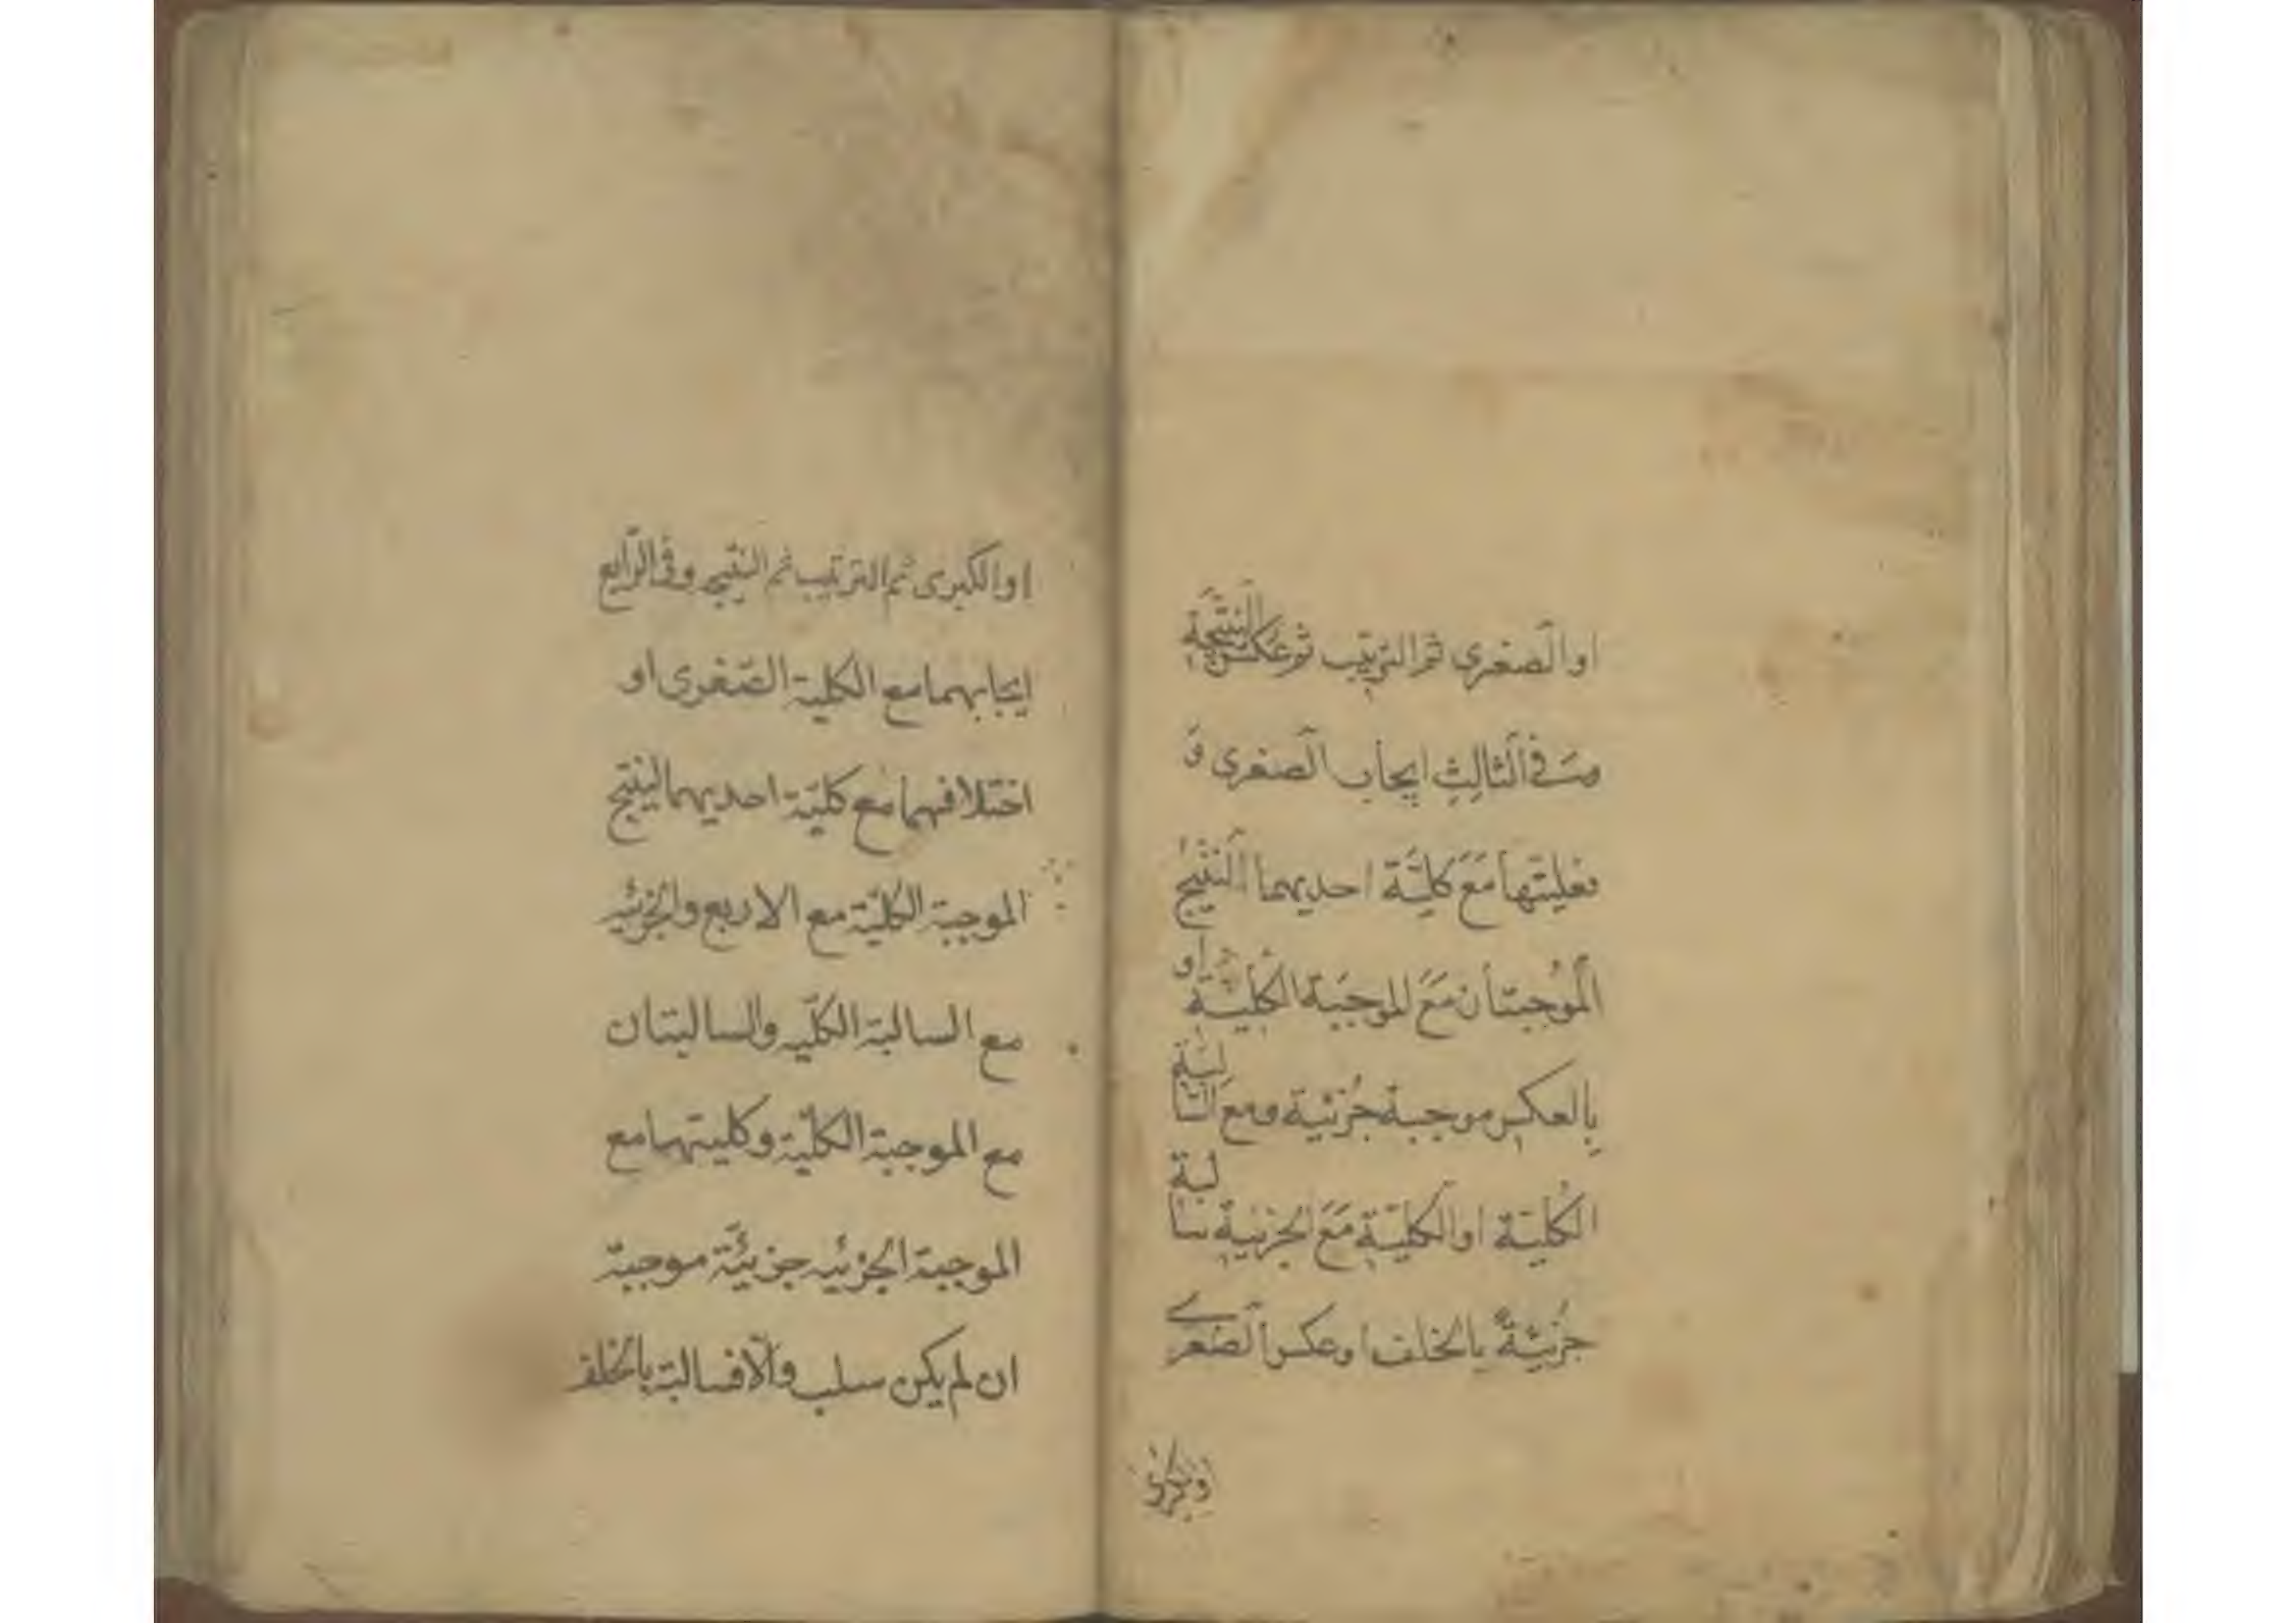 او الصغرى ثم الترتيب ثم عكس النتيجة
وفي الثالث ايجاب الصغرى و
فعليتها مع كلية احديهما لينتج
الموجبتان مع الموجبة الكلية او
بالعكس موجبة جزئية ومع السالبة
الكلية او الكلية مع الجزئية سالبة
جزئية بالخلف او عكس الصغرى
او الكبرى ثم الترتيب ثم النتيجه وفي الرابع
ايجابهما مع الكلية الصّغرى او
اختلافهما مع كليّة احديهما لينتج
الموجبة الكليّة مع الاربع والجزئيه
مع السالبة الكلّيه والسالبتان
مع الموجبة الكليّة وكليتهما مع
الموجبة الجزئيه جزئيّة موجبة
ان لم يكن سلب والّا فسالبة بالخلف